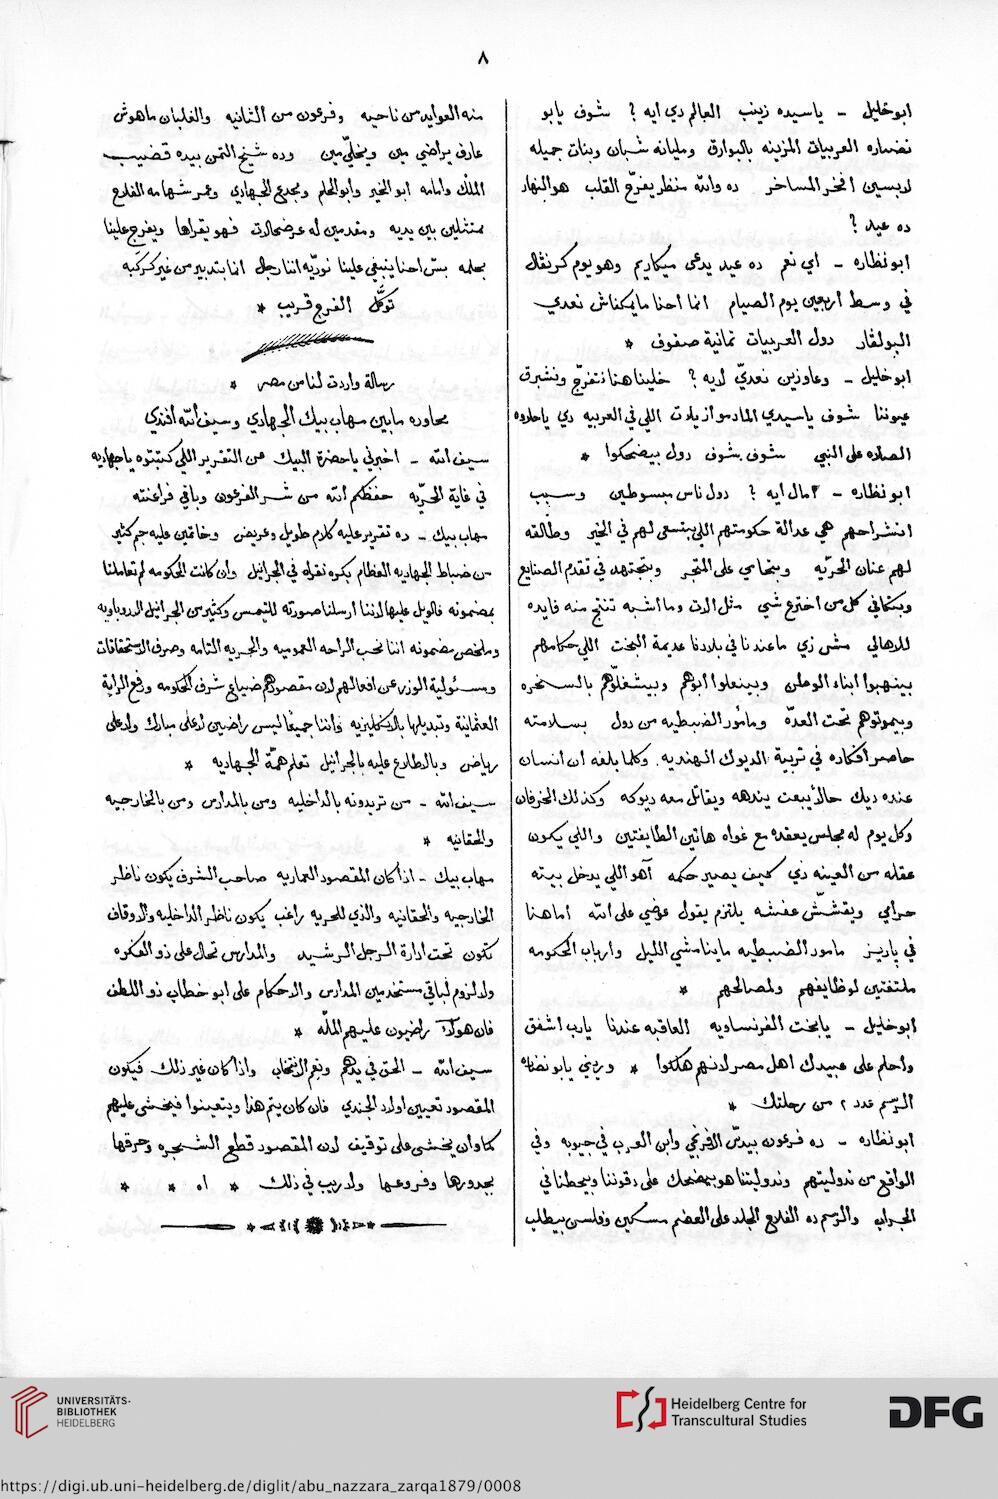 ٨
ابو خليل - ياسيده زينب العالم دي ايه ؟ شوف يابو
نضاره العربيات المزينه بالبوارق ومليانه شبان وبنات جميله
لابسين افخر المساخر ده والله منظر يفرّج القلب هو النهار
ده عيد ؟
ابو نظاره - اي نعم ده عيد يدعى ميكاريم وهو يوم كرنڤال
في وسط اربعين يوم الصيام انما احنا مايمكناش نعدي
البولڤار دول العربيات ثمانية صفوف *
ابو خليل - وعاوزين نعديّ لايه ؟ خلينا هنا نتفرّج ونشبرق
عيوننا شوف ياسيدي المادموازيلات اللي في العربيه دي ياحلاوه
الصلاه على النبي شوف شوف دول بيضحكوا *
ابو نظاره - امال ايه ؟ دول ناس مبسوطين وسبب
انشراحهم هي عدالة حكومتهم اللي بتسعى لهم في الخير وطالقه
لهم عنان الحرّيه وبتحامي على المتجر وبتجتهد في تقدم الصنايع
وبتكافي كل من اخترع شي مثل الات وما اشبه تنتج منه فايده
للاهالي مش زي ماعندنا في بلادنا عديمة البخت اللي حكامهم
بينهبوا ابناء الوطن وبينعلوا ابوهم وبيشغلوّهم بالسخره
وبيموتوهم تحت العدّه ومأمور الضبطيه من دول بسلامته
حاصر افكاره في تربية الديوك الهنديه وكلما بلغه ان انسان
عنده ديك حالاً يبعت يندهه ويقاتل معه ديوكه وكذلك الخرفان
وكل يوم له مجلس يعقده مع غواه هاتين الطايفتين واللي يكون
عقله من العينه دي كيف يصير حكمه آهو اللي يدخل بيته
حرامي ويقشّش عفشه يلتزم يقول عوضي على الله اما هنا
في پاريز مامور الضبطيه ماينامشي الليل وارباب الحكومه
ملتفتين لوظايفهم ولمصالحهم *
ابو خليل - يابخت الفرنساويه العاقبه عندنا يارب اشفق
واحلم على عبيدك اهل مصر لانهم هلكوا * وريني يابو نضاره
الرسم عدد ٢ من رحلتك *
ابو نظاره - ده فرعون بيدسّ الافرنجي وابن العرب في جيوبه وفي
الواقع من ندوليتهم وندوليتنا هو بيضحك على دقوننا وبيحطنا في
الجراب والرسم ده الفلاح الجلد على العضم مسكين وفلسن بيطلب
منه العوايد من ناحيه وفرعون من الثانيه والغلبان ماهوش
عارف يراضي مين ويخليّ مين وده شيخ التمن بيده قضيب
الملك وامامه ابو الخير وابو الحلم ومجدع الجهادي وعمر شهامه الفلاح
متثلين بين يديه ومقدمين له عرضحالات فهو يقراها ويفرج علينا
بحلمه بسّ احنا ينبغي علينا نورّيه اننا رجال انما بتدبير من غير كركبه
توكّل الفرج قريب *
رسالة واردت لنا من مصر *
محاوره مابين مهاب بيك الجهادي وسيف الله افندي
سيف الله - اخبرني ياحضرة البيك عن التقرير اللي كتبتوه ياجهاديه
في غاية الحرّيه حفظكم الله من شر الفرعون وباقي فراعنته
مهاب بيك - ده تقرير عليه كلام طويل وعريض وخاتمين عليه جم كثير
من ضباط الجهاديه العظام بكره نقراه في الجرانيل وان كانت الحكومه لم تعاملنا
بمضمونه فالويل عليها لاننا ارسلنا صورته للتيمس وكثير من الجرانيل الاوروباويه
وملخص مضمونه اننا نحب الراحه العموميه والحريه التامه وصرف الاستحقاقات
ومسئولية الوزر عن افعالهم لان مقصودهم ضياع شرف الحكومه ورفع الراية
العثمانية وتبديلها بالانكليزيه واننا جميعًا ليس راضين لا على مبارك ولا على
رياض وبالاطلاع عليه بالجرانيل تعلم همّة الجهاديه *
سيف الله - من تريدونه بالداخليه ومن بالمدارس ومن بالخارجيه
والحقانيه *
مهاب بيك - اذا كان المقصود العماريه صاحب الشرف يكون ناظر
الخارجيه والحقانيه والذي للحريه راغب يكون ناظر الداخليه والاوقاف
تكون تحت ادارة الرجل الرشيد والمدارس تحال على ذو الفكره
ولا لزوم لباقي مستخدمين المدارس والاحكام على ابو خطاب ذو اللطف
فان هولاء راضيون عليهم الملّه *
سيف الله - الحق في يدهم ونعم الانتخاب واذا كان غير ذلك فيكون
المقصود تعيين اولاد الجندي فان كان يتم هذا ويتعينوا فيخشى عليهم
كما وان يخشى على توقيف لان المقصود قطع الشجره وحرقها
بجدورها وفروعها ولا ريب في ذلك * اه * *
UNIVERSITÄTS-
BIBLIOTHEK
HEIDELBERG
Heidelberg Centre for
Transcultural Studies
DFG
https://digi.ub.uni-heidelberg.de/diglit/abu_nazzara_zarqa1879/0008